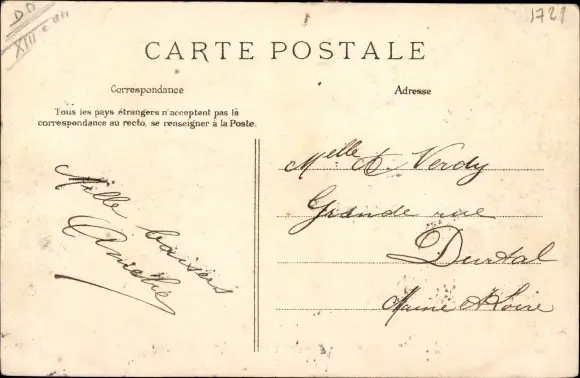 DD
XIII e arr
1721
CARTE POSTALE
Correspondance
Adresse
Tous les pays étrangers n'acceptent pas là
correspondance au recto, se renseigner à la Poste.
Mille baisers
Melle A. Verdy
Grande rue
Durtal
Maine & Loire